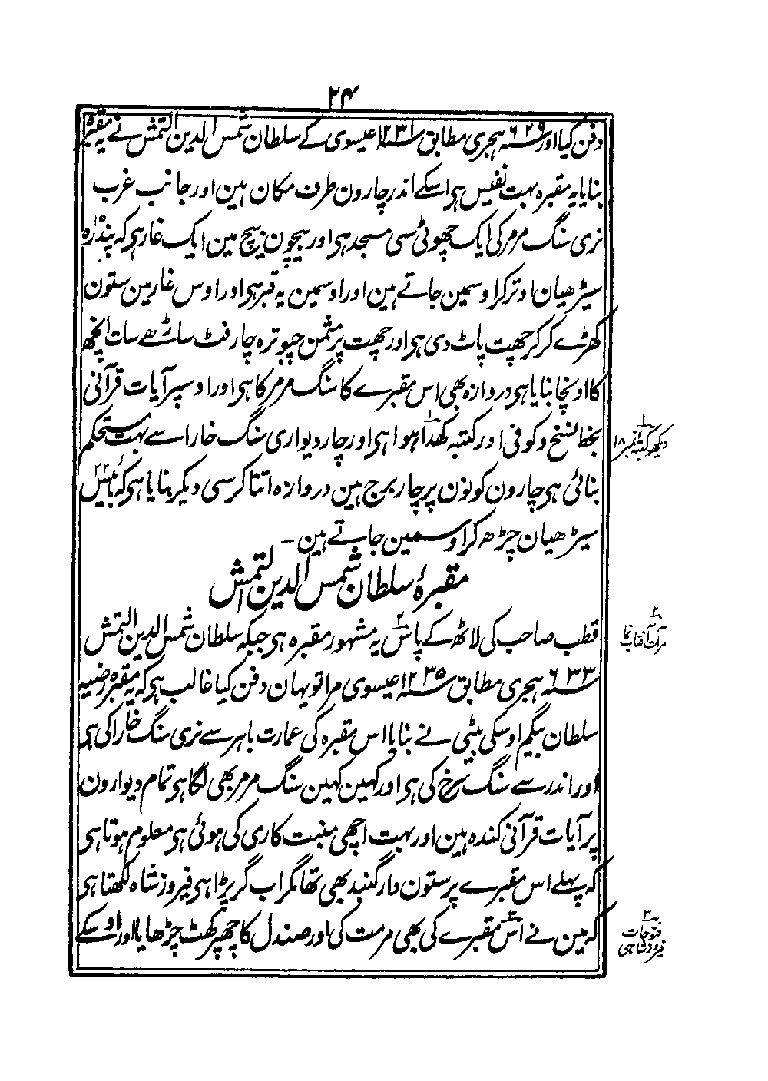 ۲۴
دفن کیا اور ۶۲۹ سنہ ہجری مطابق ۱۲۳۱ سنہ عیسوی کے سلطان شمس الدین التمش نے یہ مقبرہ
بنایا یہ مقبرہ بہت نفیس ہی اسکے اندر چارون طرف مکان ہین اور جانب غرب
نری سنگ مرمر کی ایک چھوٹی سی مسجد ہی اور بیچون بیچ مین ایک غار ہی کہ پندرہ
سیڑھیان اوتر کر اوسمین جاتے ہین اور اوسمین یہ قبر ہی اور اوس غار مین ستون
کھڑے کر کر چھت پاٹ دی ہی اور چھت پر مثمن چبوترہ چار فٹ ساڑھے سات انچھ
کا اونچا بنایا ہی دروازہ بھی اس مقبرے کا سنگ مرمر کا ہی اور اوسپر آیات قرآنی
بخط نسخ و کوفی اور کتبہ کھدا ہوا ہی اور چار دیواری سنگ خارا سے بہت مستحکم
بنائی ہی چارون کونون پر چار برج ہین دروازہ اتنا کرسی دیکر بنایا ہی کہ بائیس ۲۲
سیڑھیان چڑھ کر اوسمین جاتے ہین ۔
۱
دیکھو کتبہ نمبر ۱۸
مقبرۂ سلطان شمس الدین التمش
قطب صاحب کی لاٹھ کے پاس یہ مشہور مقبرہ ہی جبکہ سلطان شمس الدین التمش
۶۳۳ سنہ ہجری مطابق ۱۲۳۵ سنہ عیسوی مرا تو یہان دفن کیا غالب ہی کہ یہ مقبرہ رضیہ
سلطان بیگم اوسکی بیٹی نے بنایا اس مقبرہ کی عمارت باہر سے نری سنگ خارا کی ہی
اور اندر سے سنگ سرخ کی ہی اور کہین کہین سنگ مرمر بھی لگا ہی تمام دیوارون
پر آیات قرآنی کندہ ہین اور بہت اچھی منبت کاری کی ہوئی ہی معلوم ہوتا ہی
کہ پہلے اس مقبرے پر ستون دار گنبد بھی تھا مگر اب گر پڑا ہی فیروز شاہ لکھتا ہی
کہ مین نے اس مقبرے کی بھی مرمت کی اور صندل کا چھپرکھٹ چڑھایا اور اوسکے
۲
مرآت آفتاب نما
۳
فتوحات
فیروز شاہی